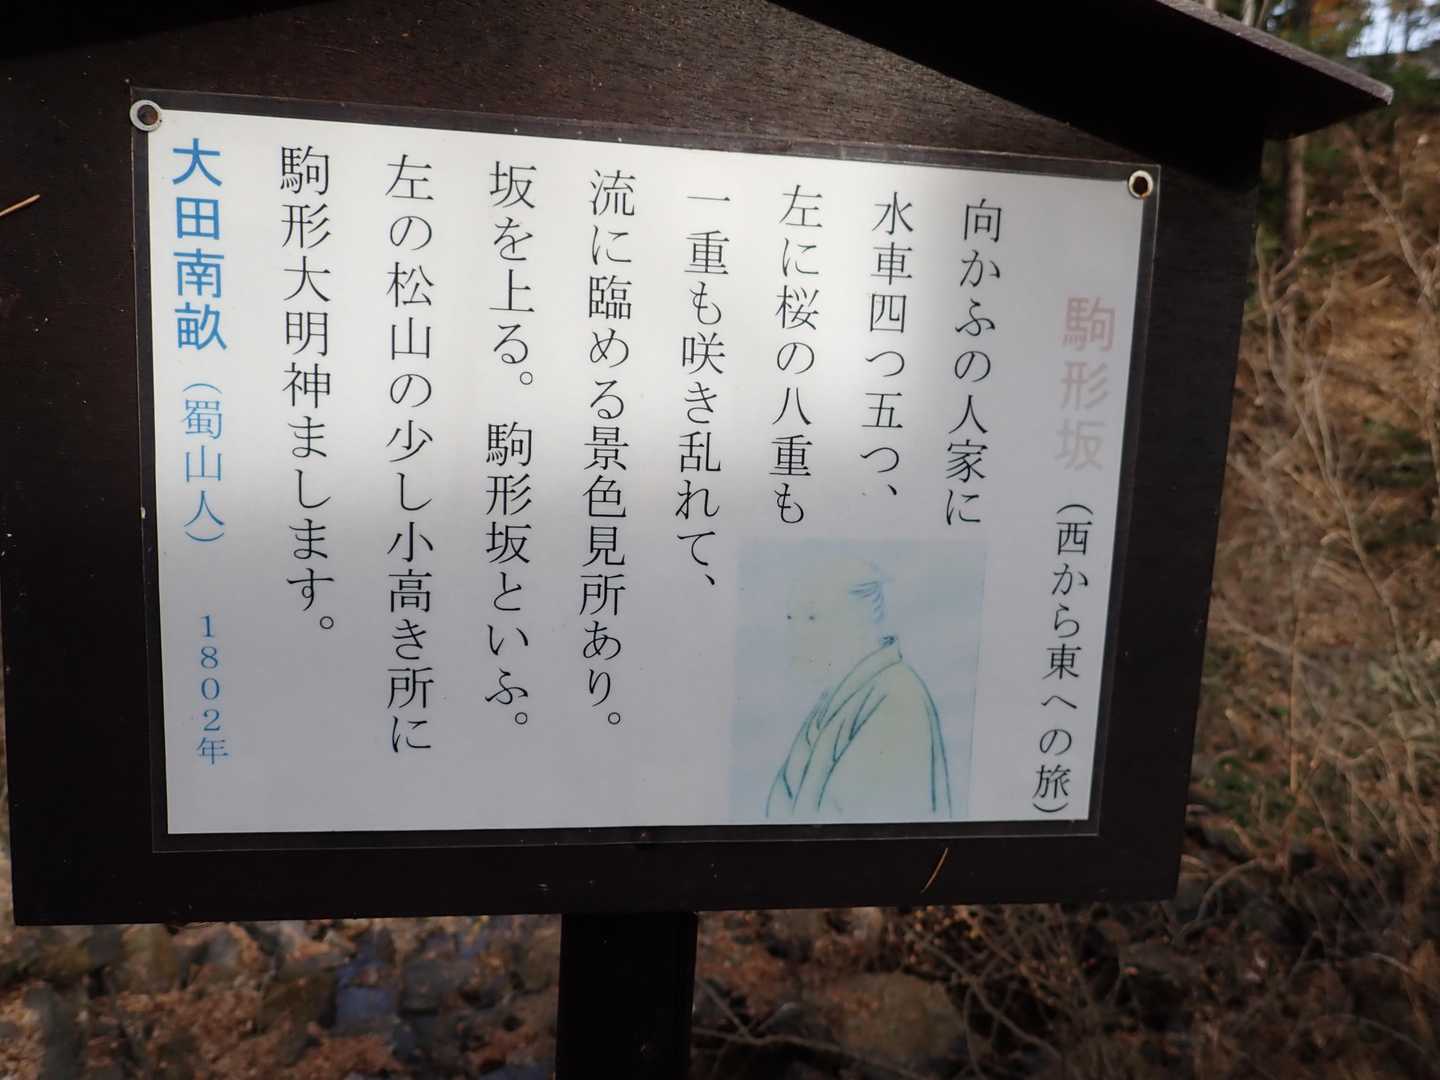 駒形坂（西から東への旅）
向かふの人家に
水車四つ五つ、
左に桜の八重も
一重も咲き乱れて、
流に臨める景色見所あり。
坂を上る。駒形坂といふ。
左の松山の少し小高き所に
駒形大明神まします。
大田南畝（蜀山人）　1802年